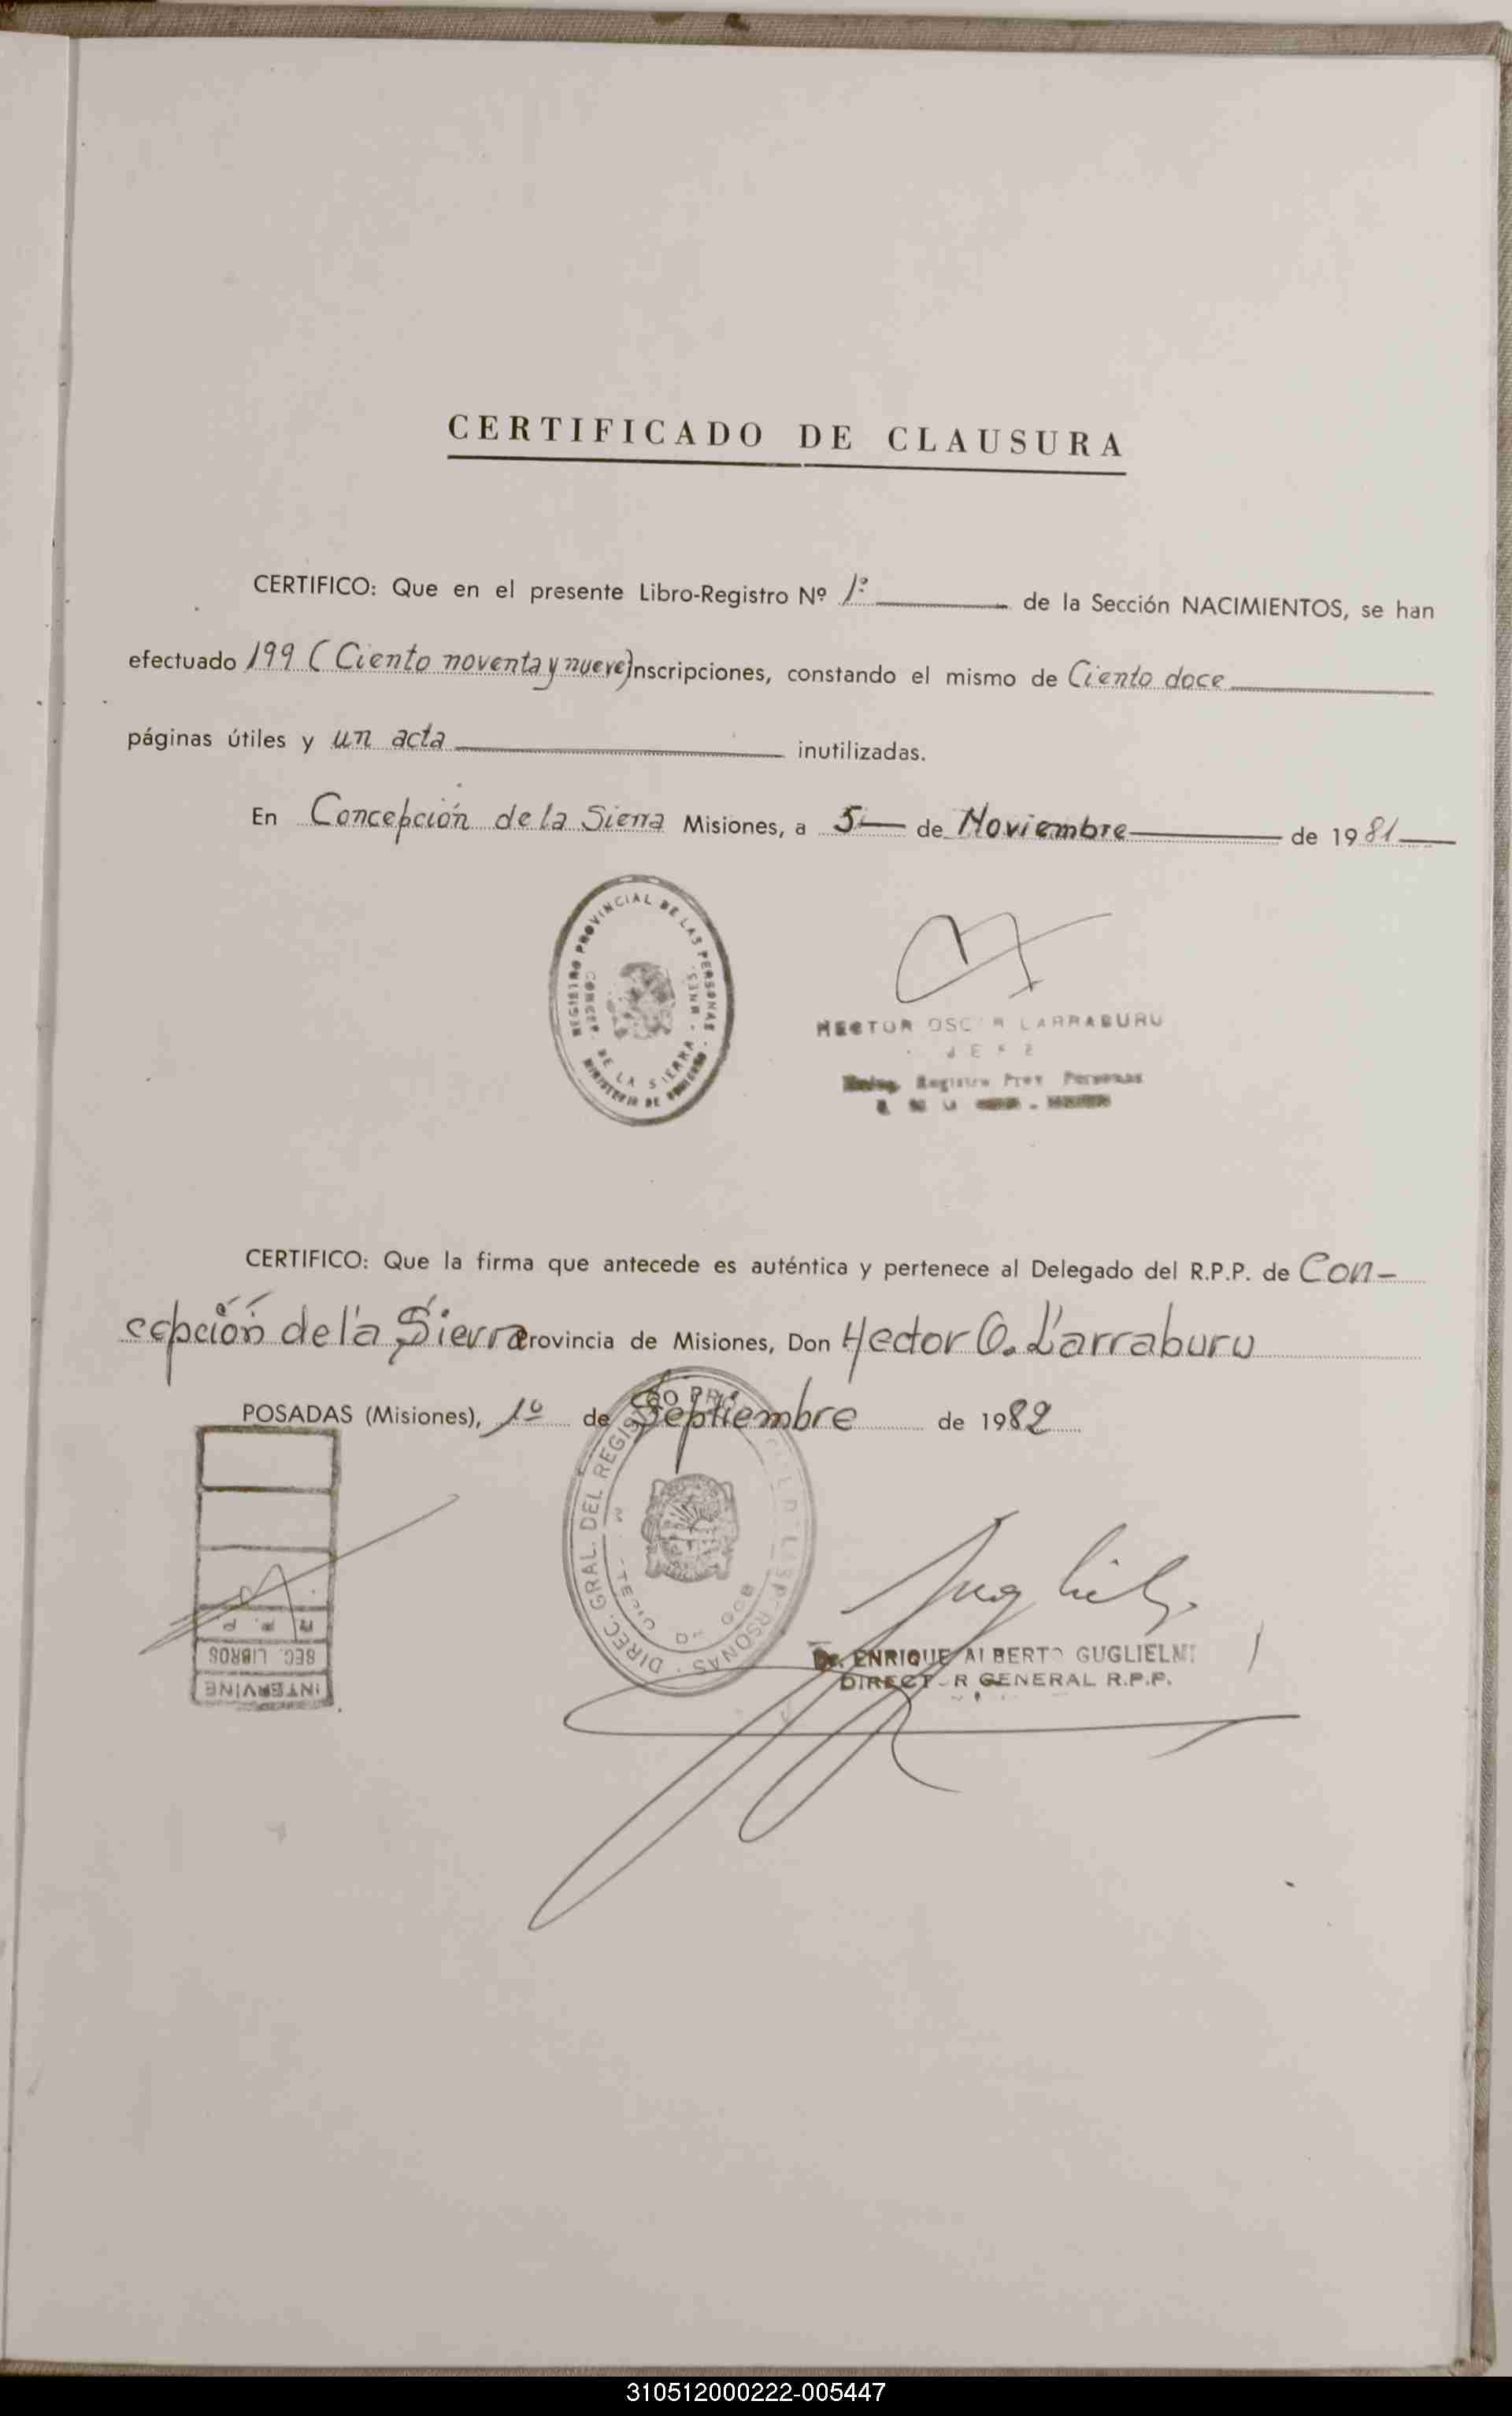 CERTIFICADO DE CLAUSURA
CERTIFICO: Que en el presente Libro-Registro Nº 1º de la Sección NACIMIENTOS, se han
efectuado 199 (Ciento noventa y nueve) inscripciones, constando el mismo de Ciento doce
páginas útiles y un acta inutilizadas.
En Concepción de la Sierra Misiones, a 5 de Noviembre de 1981
REGISTRO PROVINCIAL DE LAS PERSONAS
CONCEP. DE LA SIERRA - MNES.
MINISTERIO DE GOBIERNO
HECTOR OSCAR LARRABURU
JEFE
Registro Prov Personas
CERTIFICO: Que la firma que antecede es auténtica y pertenece al Delegado del R.P.P. de Con-
cepción de la Sierra Provincia de Misiones, Don Hector O. Larraburu
POSADAS (Misiones), 1º de Septiembre de 1982
DIREC. GRAL. DEL REGISTRO PROVINCIAL DE LAS PERSONAS
INTERVINE
SEC. LIBROS
R. P. P.
Dr. ENRIQUE ALBERTO GUGLIELMI
DIRECTOR GENERAL R.P.P.
310512000222-005447